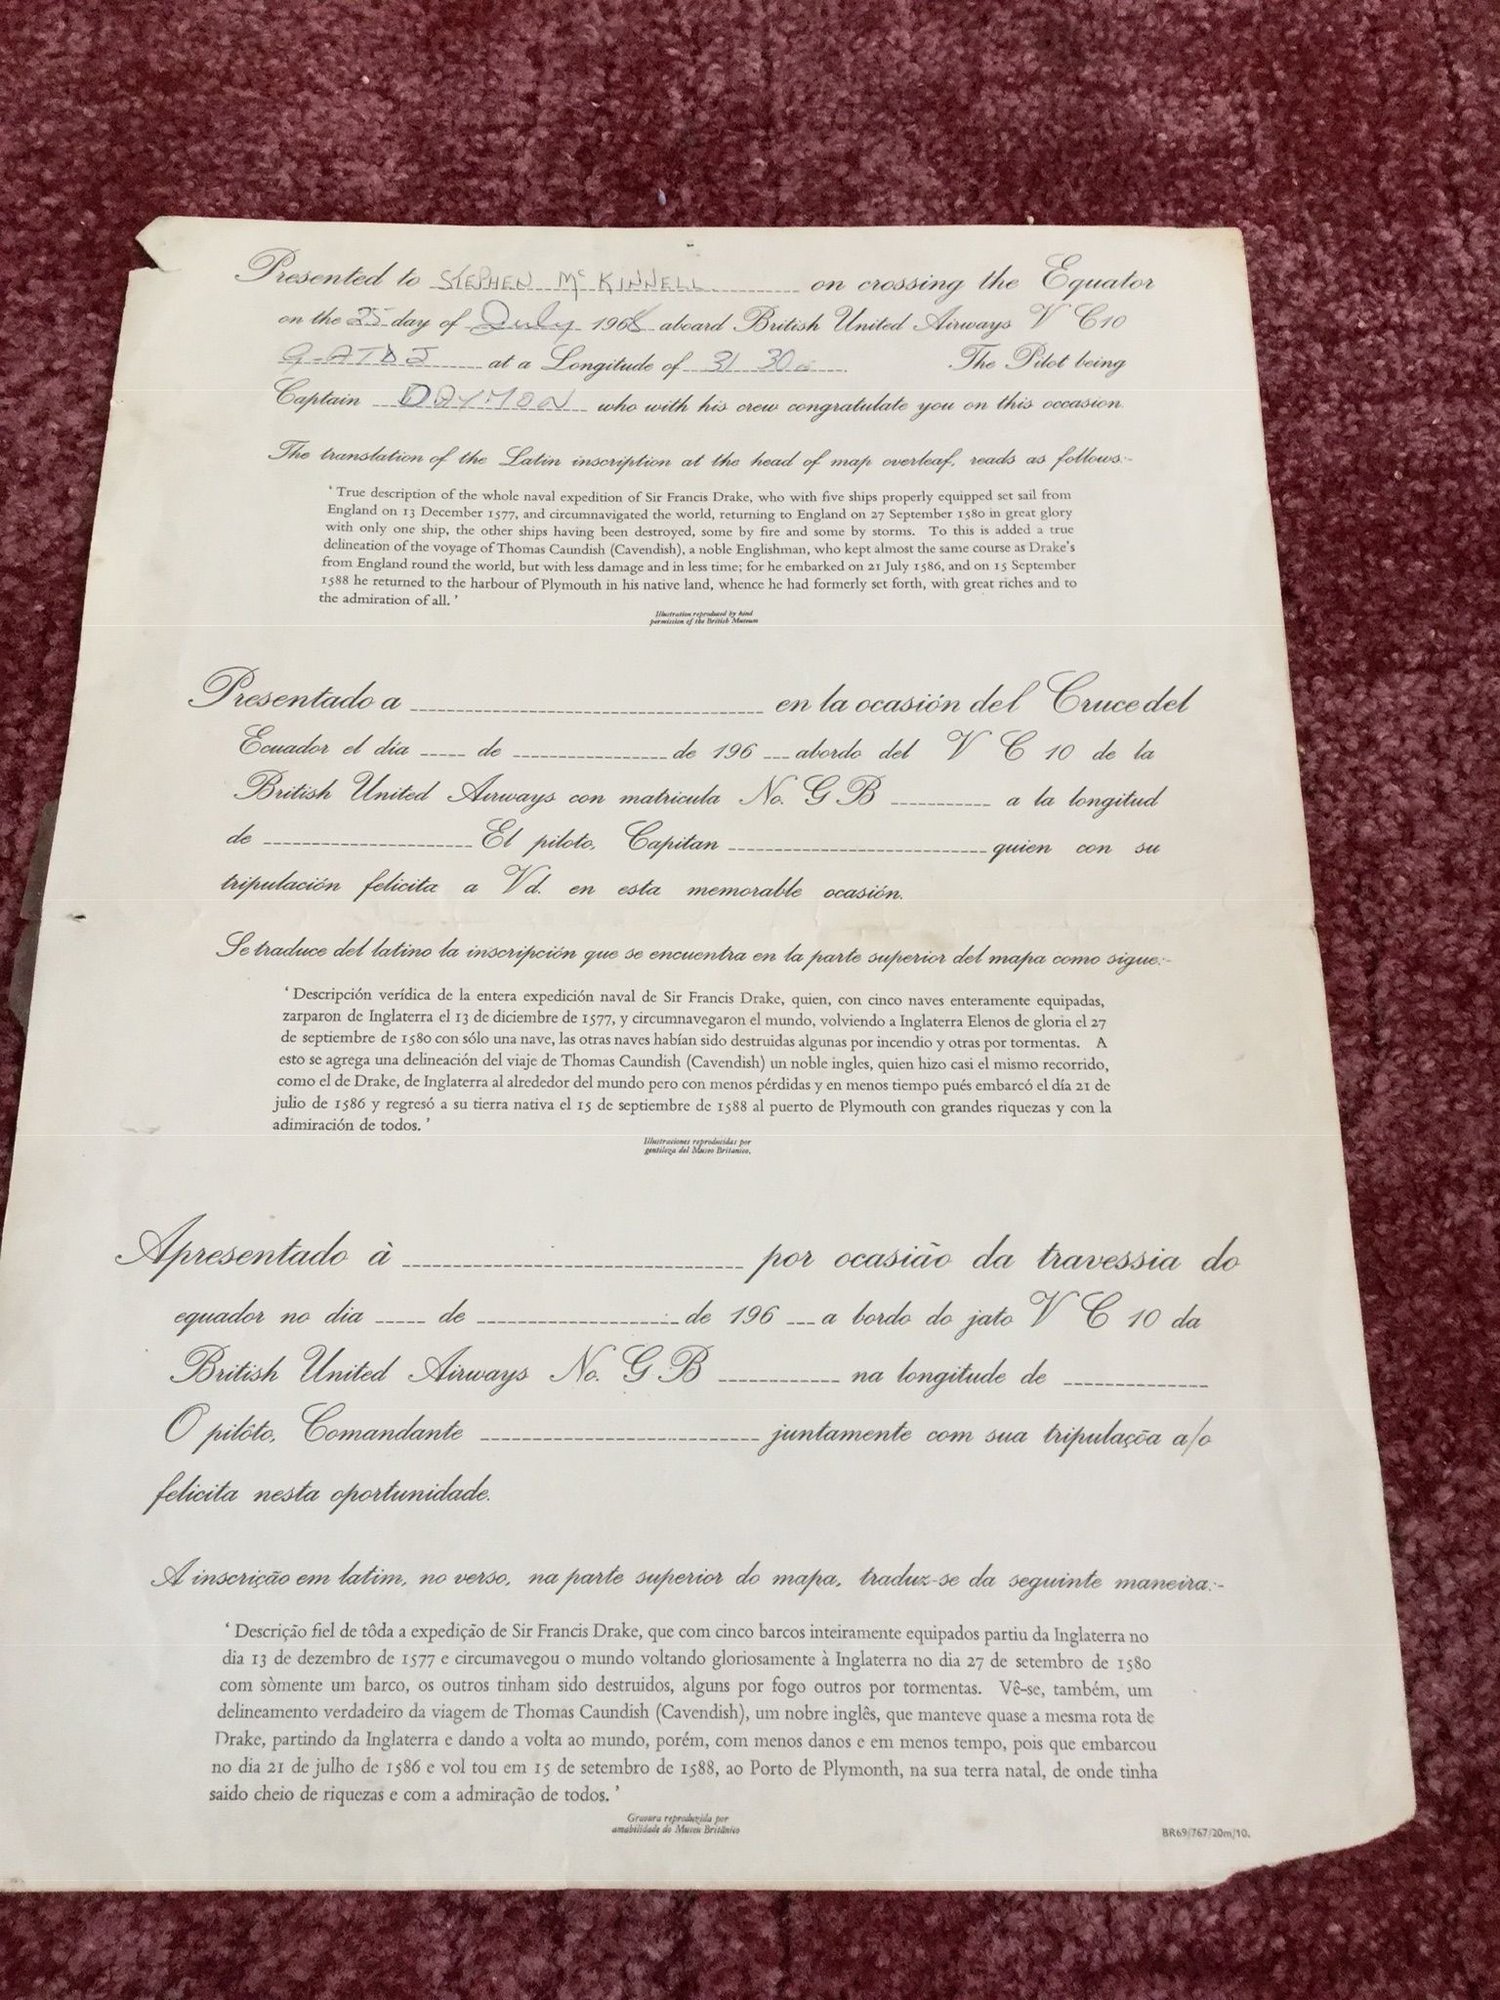 Presented to STEPHEN McKINNELL on crossing the Equator
on the 25 day of July 1968 aboard British United Airways V C10
G-ATDJ at a Longitude of 31 30 The Pilot being
Captain DAYMON who with his crew congratulate you on this occasion.
The translation of the Latin inscription at the head of map overleaf, reads as follows:-
‘True description of the whole naval expedition of Sir Francis Drake, who with five ships properly equipped set sail from
England on 13 December 1577, and circumnavigated the world, returning to England on 27 September 1580 in great glory
with only one ship, the other ships having been destroyed, some by fire and some by storms. To this is added a true
delineation of the voyage of Thomas Caundish (Cavendish), a noble Englishman, who kept almost the same course as Drake's
from England round the world, but with less damage and in less time; for he embarked on 21 July 1586, and on 15 September
1588 he returned to the harbour of Plymouth in his native land, whence he had formerly set forth, with great riches and to
the admiration of all.’
Illustration reproduced by kind
permission of the British Museum
Presentado a en la ocasión del Cruce del
Ecuador el dia de de 196 abordo del V C 10 de la
British United Airways con matricula No. G B a la longitud
de El piloto, Capitan quien con su
tripulación felicita a Vd. en esta memorable ocasión.
Se traduce del latino la inscripción que se encuentra en la parte superior del mapa como sigue:-
‘Descripción verídica de la entera expedición naval de Sir Francis Drake, quien, con cinco naves enteramente equipadas,
zarparon de Inglaterra el 13 de diciembre de 1577, y circumnavegaron el mundo, volviendo a Inglaterra Elenos de gloria el 27
de septiembre de 1580 con sólo una nave, las otras naves habían sido destruidas algunas por incendio y otras por tormentas. A
esto se agrega una delineación del viaje de Thomas Caundish (Cavendish) un noble ingles, quien hizo casi el mismo recorrido,
como el de Drake, de Inglaterra al alrededor del mundo pero con menos pérdidas y en menos tiempo pués embarcó el día 21 de
julio de 1586 y regresó a su tierra nativa el 15 de septiembre de 1588 al puerto de Plymouth con grandes riquezas y con la
admiración de todos.’
Illustraciones reproducidas por
gentileza del Museo Britanico.
Apresentado à por ocasião da travessia do
equador no dia de de 196 a bordo do jato V C 10 da
British United Airways No. G B na longitude de
O pilôto, Comandante juntamente com sua tripulaçõa a/o
felicita nesta oportunidade.
A inscrição em latim, no verso, na parte superior do mapa, traduz-se da seguinte maneira:-
‘Descrição fiel de tôda a expedição de Sir Francis Drake, que com cinco barcos inteiramente equipados partiu da Inglaterra no
dia 13 de dezembro de 1577 e circumavegou o mundo voltando gloriosamente à Inglaterra no dia 27 de setembro de 1580
com sòmente um barco, os outros tinham sido destruidos, alguns por fogo outros por tormentas. Vê-se, também, um
delineamento verdadeiro da viagem de Thomas Caundish (Cavendish), um nobre inglês, que manteve quase a mesma rota de
Drake, partindo da Inglaterra e dando a volta ao mundo, porém, com menos danos e em menos tempo, pois que embarcou
no dia 21 de julho de 1586 e vol tou em 15 de setembro de 1588, ao Porto de Plymonth, na sua terra natal, de onde tinha
saido cheio de riquezas e com a admiração de todos.’
Gravura reproduzida por
amabilidade do Museu Britânico
BR69/767/20m/10.